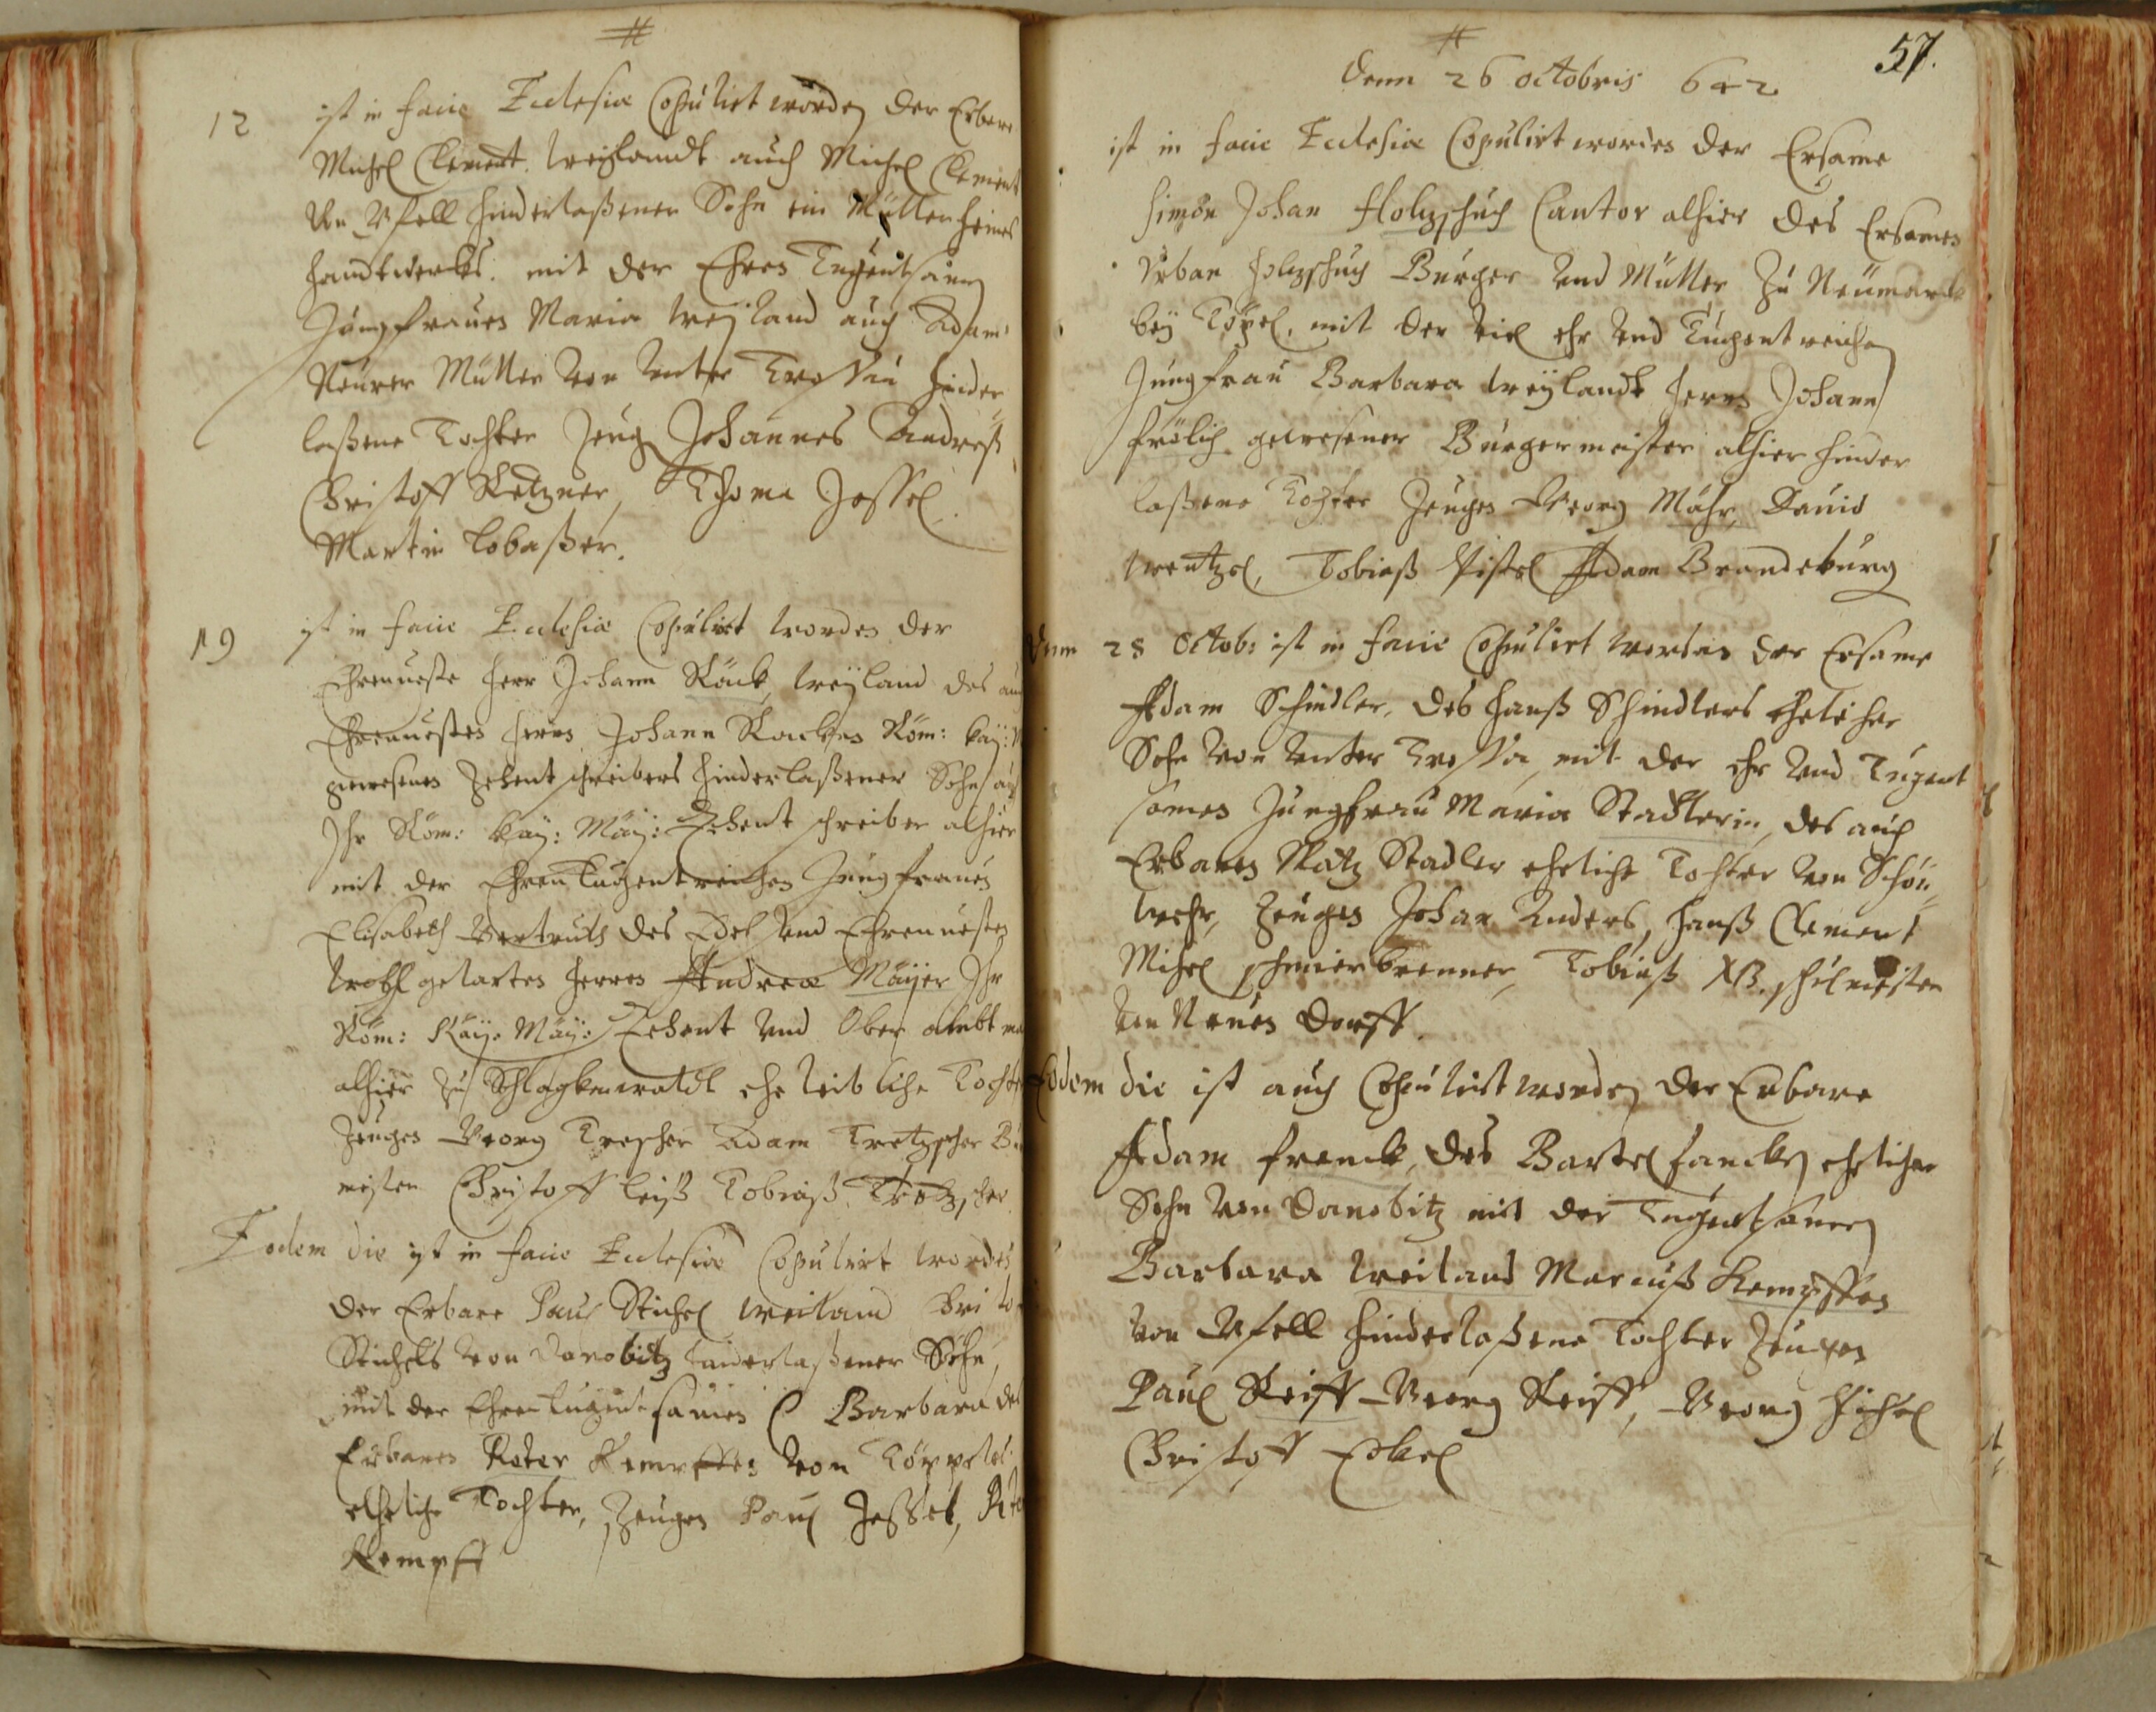 12 ist in facie Ecclesiæ Copulirt worden der Erbare
Michel Clement. weÿlandt auch Michel Clement
Vfell hinderlaßener Sohn ein Müller seines
handtwercks. mit der Ehren Tugentsamen
Jungfrauen Maria weÿland auch Adam
Neürer Müller von Unter hinder
laßene Tochter Zeug Johannes Andreß
Christoff Thoma Jessel.
Martin Lobaßer.
19 ist in facie Ecclesiæ Copulirt worden der
Ehrnueste herr Johann Röck, weÿland des
Ehrnuesten herrn Johann Rackens Röm: kaÿ:
gewesenes Zehent schreibers hinderlaßener Sohn
Ihr Röm: kaÿ: Maÿ: Zehent schreiber alhier
mit der Ehren Tugentreichen Jungfrauen
Elisabeth Gertruth des Edel und Ehrnuesten
wohl gelarten herren Andreæ Maÿer Ihr
Röm: Kaÿ: Maÿ: Zehent und Ober ambt
alhier zu Schlagkenwaldt ehe leibliche Tochter
Zeugen Georg Adam
meister Christoff Tobiaß
Eodem die ist in facie Ecclesiæ Copulirt worden
der Erbare Paul Stichel weiland
Stichels von Donabitz hinderlaßener Sohn,
mit der Ehren tugentsamen Barbara des
Erbaren Peter Kempffen von
eheliche Tochter, Zeugen Paul Jessel,
Kempff
57.
Denn 26 octobris 642
ist in facie Ecclesiæ Copulirt worden der Ersame
Simon Johan Holtzschuch Cantor alhier des Ersamen
Vrban holtzschuch Burger und Müller zu Neümarck
beÿ Töpel, mit der viel ehr und Tugentreichen
Jungfrau Barbara weÿlandt herrn Johann
frölich gewesener Burgermeister alhier hinder
laßene Tochter Zeugen Georg Mahr, Dauid
Wentzel, Tobiaß Pistel Adam Brandeburg
Denn 28 Octob: ist in facie Copulirt worden der Ersame
Adam Schindler, des hanß Schindlers ehelicher
Sohn von Unter mit der ehr und Tugent
samen Jungfrau Maria Stadlerin, des auch
Erbaren Matz Stadler eheliche Tochter von Schön
wehr, Zeugen Johan Anders, hanß Clement
Michel schmierbrenner, Tobiaß schulmeister
von Neuen Dorff.
Eodem die ist auch Copulirt worden der Erbare
Adam franck, des Bartel francken ehelicher
Sohn von Donabitz mit der Tugentsamen
Barbara weiland Marcuß Kempffen
von Vfell hinderlaßene Tochter Zeugen
Paul Reiff Georg Reiff, Georg
Christoff Eckel